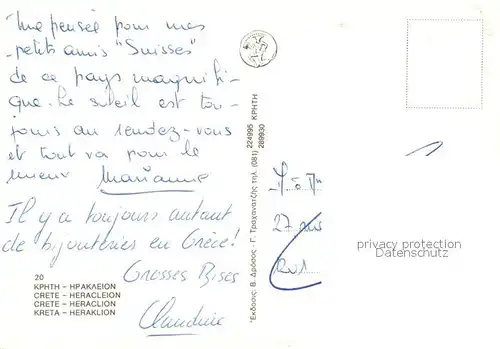 Une pensée pour mes
petits amis "Suisses"
de ce pays magnifi-
que. Le soleil est tou-
jours au rendez-vous
et tout va pour le
mieux Marianne
Il y a toujours autant
de bijouteries en Grèce!
Grosses Bises
Claudine
20
ΚΡΗΤΗ - ΗΡΑΚΛΕΙΟΝ
CRETE - HERACLEION
CRETE - HERACLION
KRETA - HERAKLION
Ἐκδοσις: Β. Δρόσος - Γ. Τραχανατζῆς τηλ. (081) 224995 ΚΡΗΤΗ
289930
27
privacy protection
Datenschutz